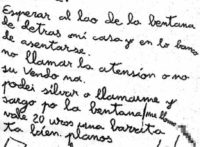 Esperar al lao de la bentana
de detras mi casa y en lo banco
de asentarse.
no llamar la atensión o no
su vendo na.
podei silvar o llamarme y
sargo po la bentana/me llamo
vale 20 uros una barrita
ta bien planos